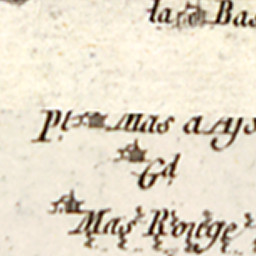 la Bas
pt Mas d'Ayo
Gd
Mas Rouge